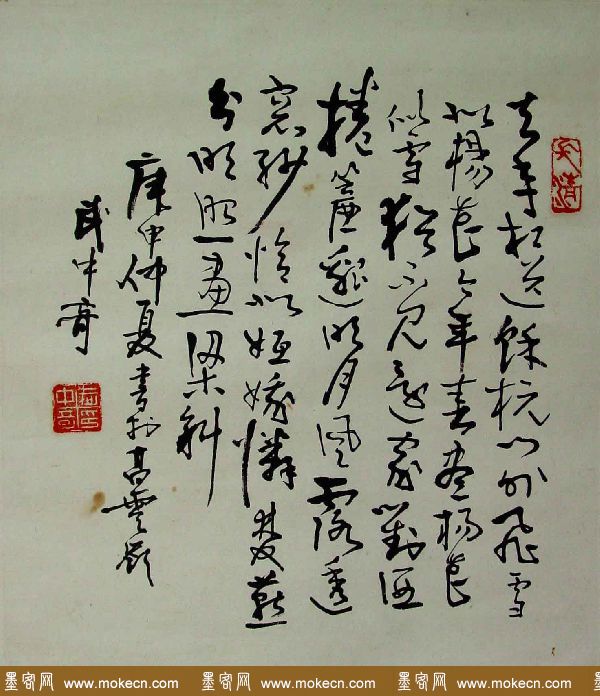 去年相送餘杭门外飛雪
似楊花今年春盡楊花
似雪猶不見還家對酒
捲簾邀明月風露透
窗紗恰似姮娥憐雙燕
分明照畫梁斜
庚申仲夏書於高雲嶺
武中奇
武中奇印
墨客网 www.mokecn.com 墨客网 www.mokecn.com 墨客网 www.mokecn.com 墨客网 www.mokecn.com